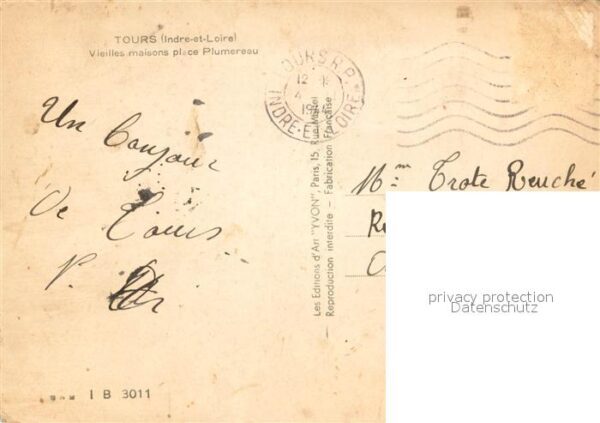 TOURS (Indre-et-Loire)
Vieilles maisons place Plumereau
Un Bonjour
de Tours
P.
I B 3011
Les Editions d'Art "YVON", Paris, 15, Rue Martel
Reproduction interdite — Fabrication Française
TOURS R.P.
12 *
4
19
INDRE-ET-LOIRE
Mme Trote Reuché
privacy protection
Datenschutz